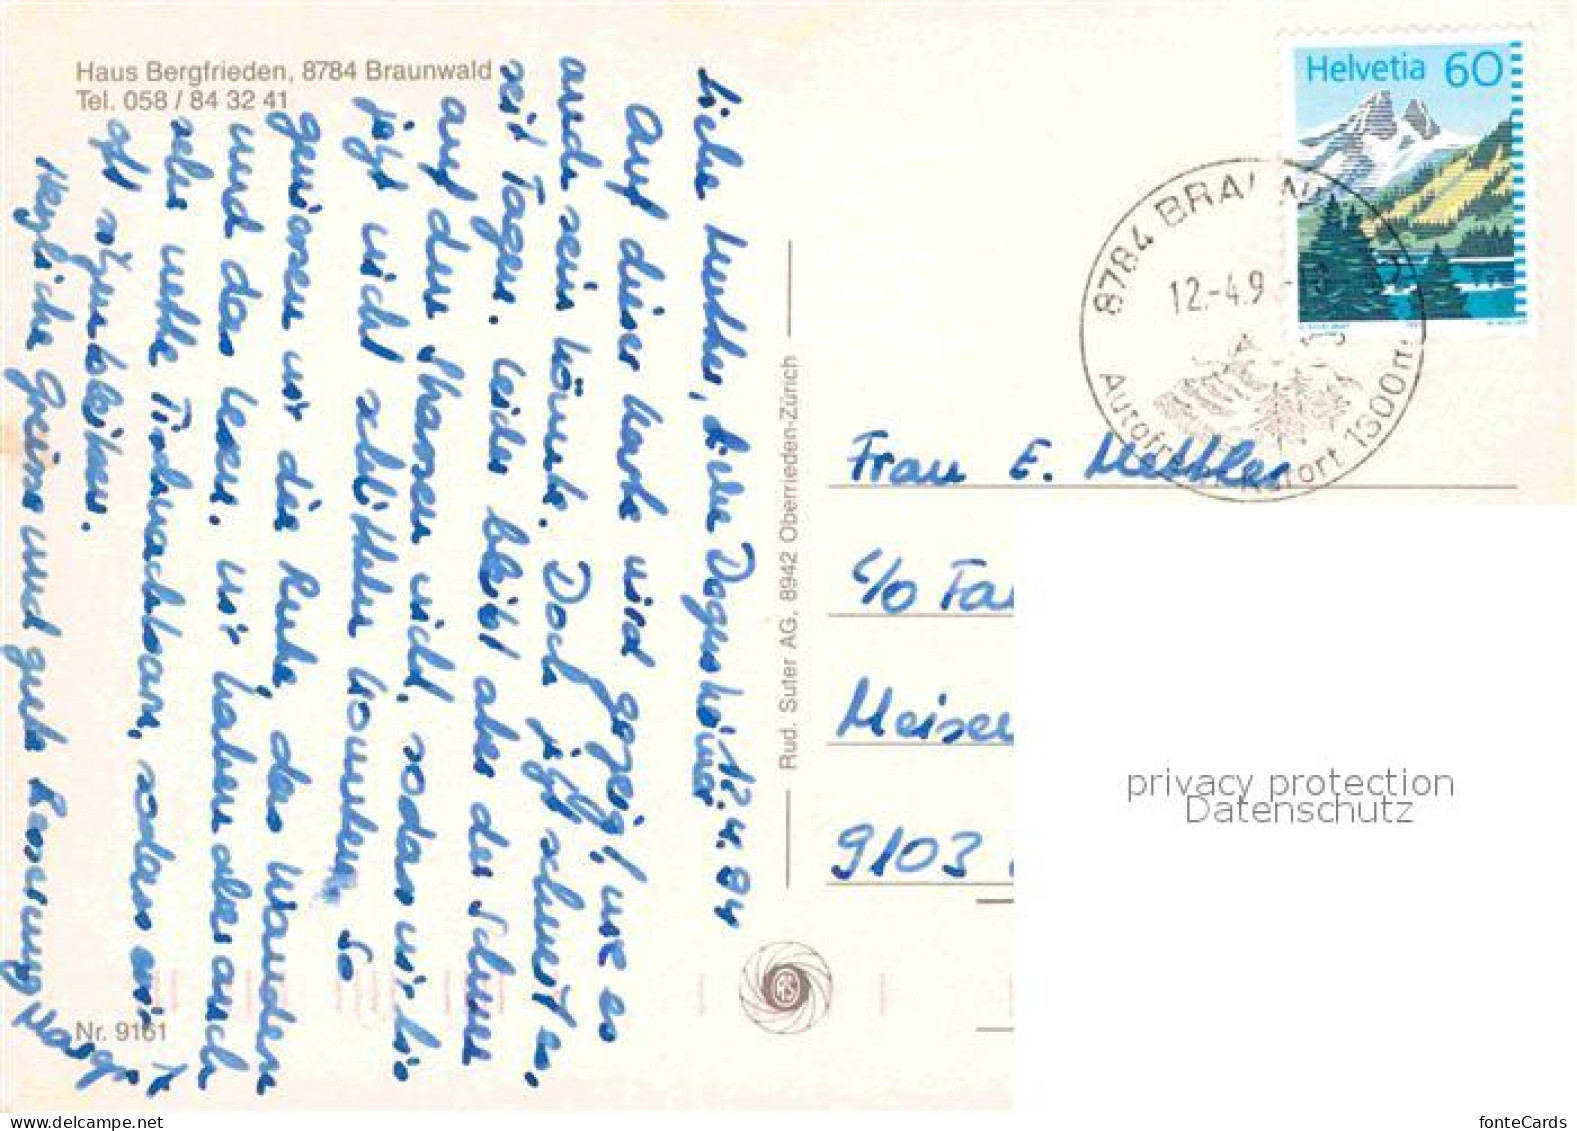 Haus Bergfrieden, 8784 Braunwald
Tel. 058 / 84 32 41
12.4.94
Liebe
Auf dieser Karte wird gezeigt, wie es
auch sein könnte. Doch jetzt schneit es.
seit Tagen. Leider bleibt aber der Schnee
auf den Strassen nicht, sodass wir bis
jetzt nicht schlitteln konnten. So
geniessen wir die Ruhe, das Wandern
und das Lesen. Wir haben aber auch
sehr nette Tischnachbarn, sodass wir
oft sitzenbleiben.
Herzliche Grüsse und gute Besserung
Nr. 9161
Rud. Suter AG, 8942 Oberrieden-Zürich
Helvetia 60
8784 BRA
12.-4.9
1300m
Frau E. Mettler
c/o Fa
Meise
9103
privacy protection
Datenschutz
www.delcampe.net
fonteCards